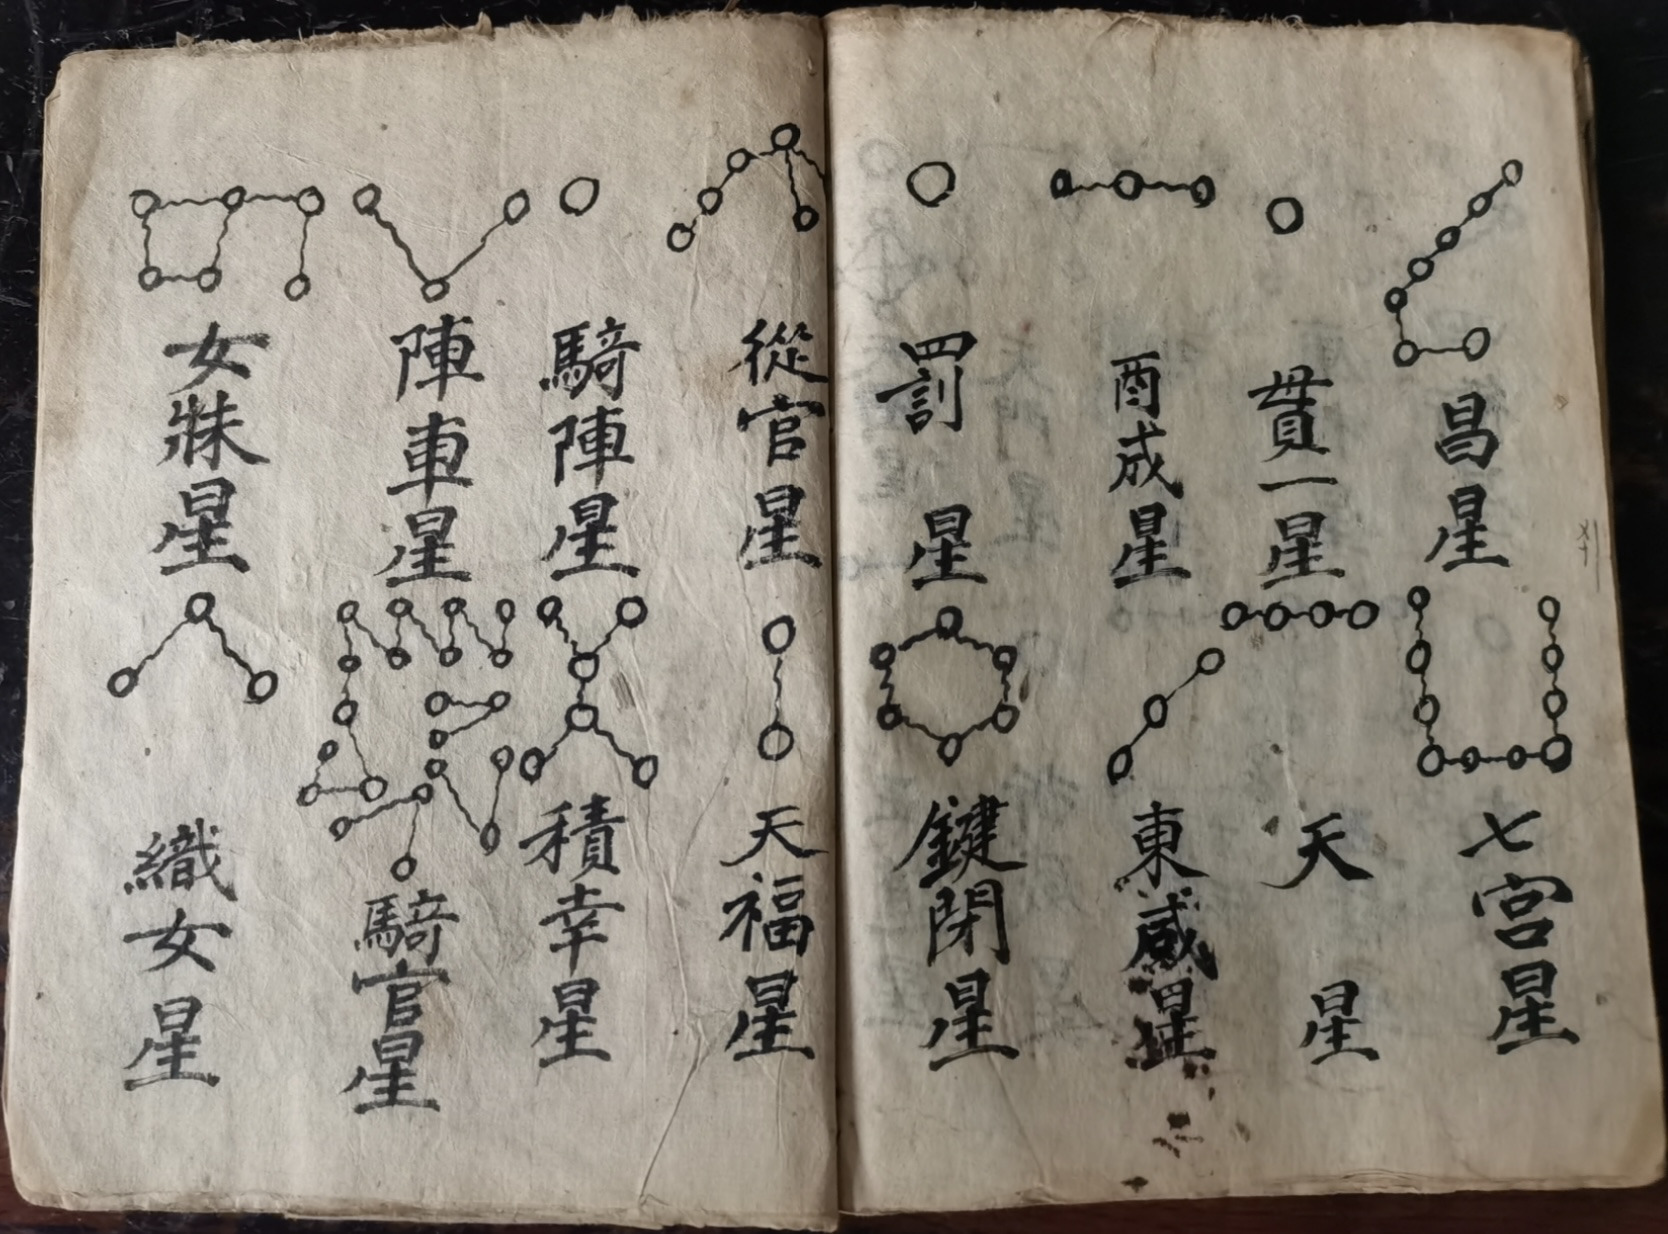 昌星
貫一星
酉成星
罰星
七宮星
天星
東咸星
鍵閉星
從官星
騎陣星
陣車星
女牀星
天福星
積幸星
騎官星
織女星